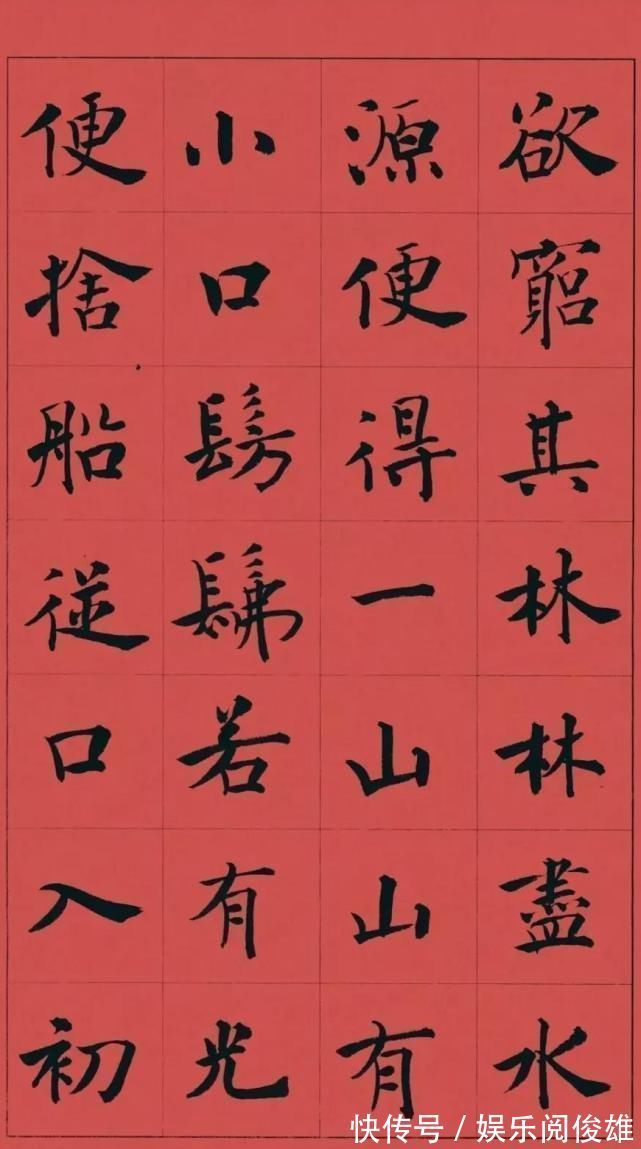 欲窮其林林盡水
源便得一山山有
小口髣髴若有光
便捨船從口入初
快传号 / 娱乐阅俊雄